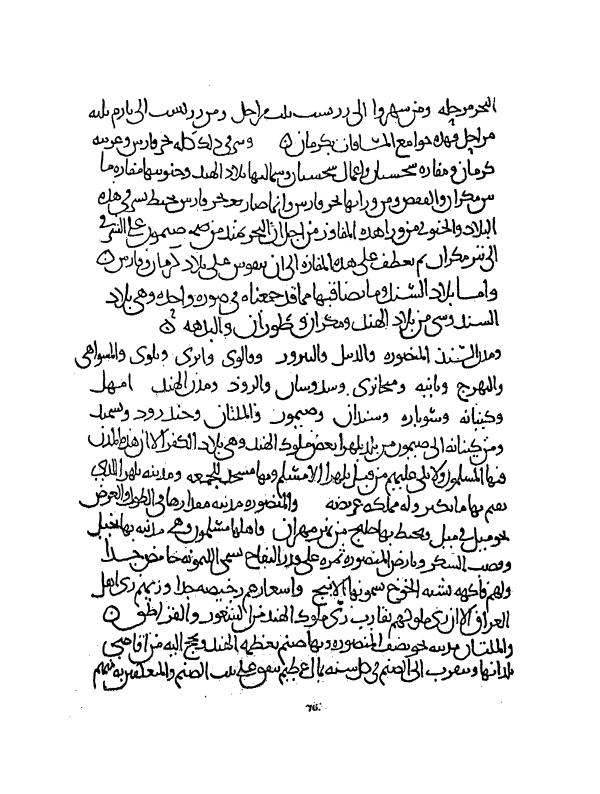 البحر مرحله ومن سهروا الى دردست ثلث مراحل ومن دردست الى بارم ثلثه
مراحل فهذه جوامع المسافات بكرمان ه وشرقي ذلك كله بحر فارس وغربيه
كرمان ومفازه سجستان واعمال سجستان وشماليها بلاد الهند وجنوبيها مفازه ما
بين مكران والقفص ومن ورائها بحر فارس وانما صار بحر فارس يحيط بشرقي هذه
البلاد والجنوبي من وراء هذه المفاوز من اجل ان البحر يمتد من صيمور على الشرقي
الى تيز مكران ثم يعطف على هذه المفازه الى ان يتقوس على بلاد كرمان وفارس ه
واما بلاد السند وما يصاقبها مما قد جمعناه في صوره واحده وهى بلاد
السند وشى من بلاد الهند ومكران وطوران والبدهه ه
ومدن السند المنصوره والدبل والبيرون وقالوى وانرى وبلوى والمسواهى
والبهرج وبانيه ومنحاترى وسدوسان والروذ ومدن الهند امهل
وكنبايه وسوباره وسندان وصيمور والملتان وجندرود وبسمد
ومن كنبايه الى صيمور من بلد بلهرا بعض ملوك الهند وهى بلاد الكفر الا ان هذه المدن
فيها المسلمون ولا يلى عليهم من قبل بلهرا الا مسلم وبها مسجد للجمعه ومدينه بلهرا اللذى
يقيم بها مانكير وله مملكه عريضه والمنصوره مدينه مقدارها فى الطول والعرض
نحو ميل فى ميل ويحيط بها خليج من نهر مهران واهلها مسلمون وهى مدينه بها نخيل
وقصب السكر وبارض المنصوره ثمره على قدر التفاح تسمى الليمونه حامض جدا
ولهم فاكهه تشبه الخوخ يسمونها الانبج واسعارهم رخيصه جدا وزيهم زى اهل
العراق الا ان زى ملوكهم يقارب زى ملوك الهند من الشعور والقراطق ه
والملتان مدينه نحو نصف المنصوره وبها صنم يعظمه الهند ويحج اليه من اقاصى
بلدانها ويتقرب الى الصنم فى كل سنه بمال عظيم ينفق على بيت الصنم والمعتكفين به منهم